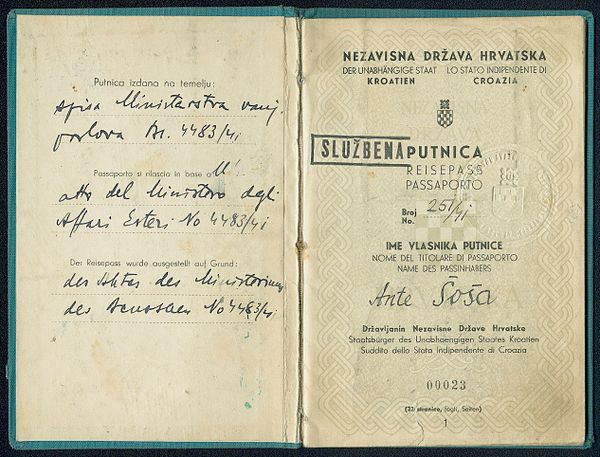 Putnica izdana na temelju:
spisa Ministarstva vanj.
poslova Br. 4483/41
Passaporto si rilascia in base a
atto del Ministero degli
Affari Esteri No 4483/41
Der Reisepass wurde ausgestellt auf Grund:
des Aktes des Ministeriums
des No 4483/41
NEZAVISNA DRŽAVA HRVATSKA
DER UNABHÄNGIGE STAAT LO STATO INDIPENDENTE DI
KROATIEN CROAZIA
SLUŽBENA PUTNICA
REISEPASS
PASSAPORTO
Broj 251/41
No.
IME VLASNIKA PUTNICE
NOME DEL TITOLARE DI PASSAPORTO
NAME DES PASSINHABERS
Ante Šoša
Državljanin Nezavisne Države Hrvatske
Staatsbürger des Unabhaengigen Staates Kroatien
Suddito dello Stato Indipendente di Croazia
00023
(32 stranice, fogli, Seiten)
1